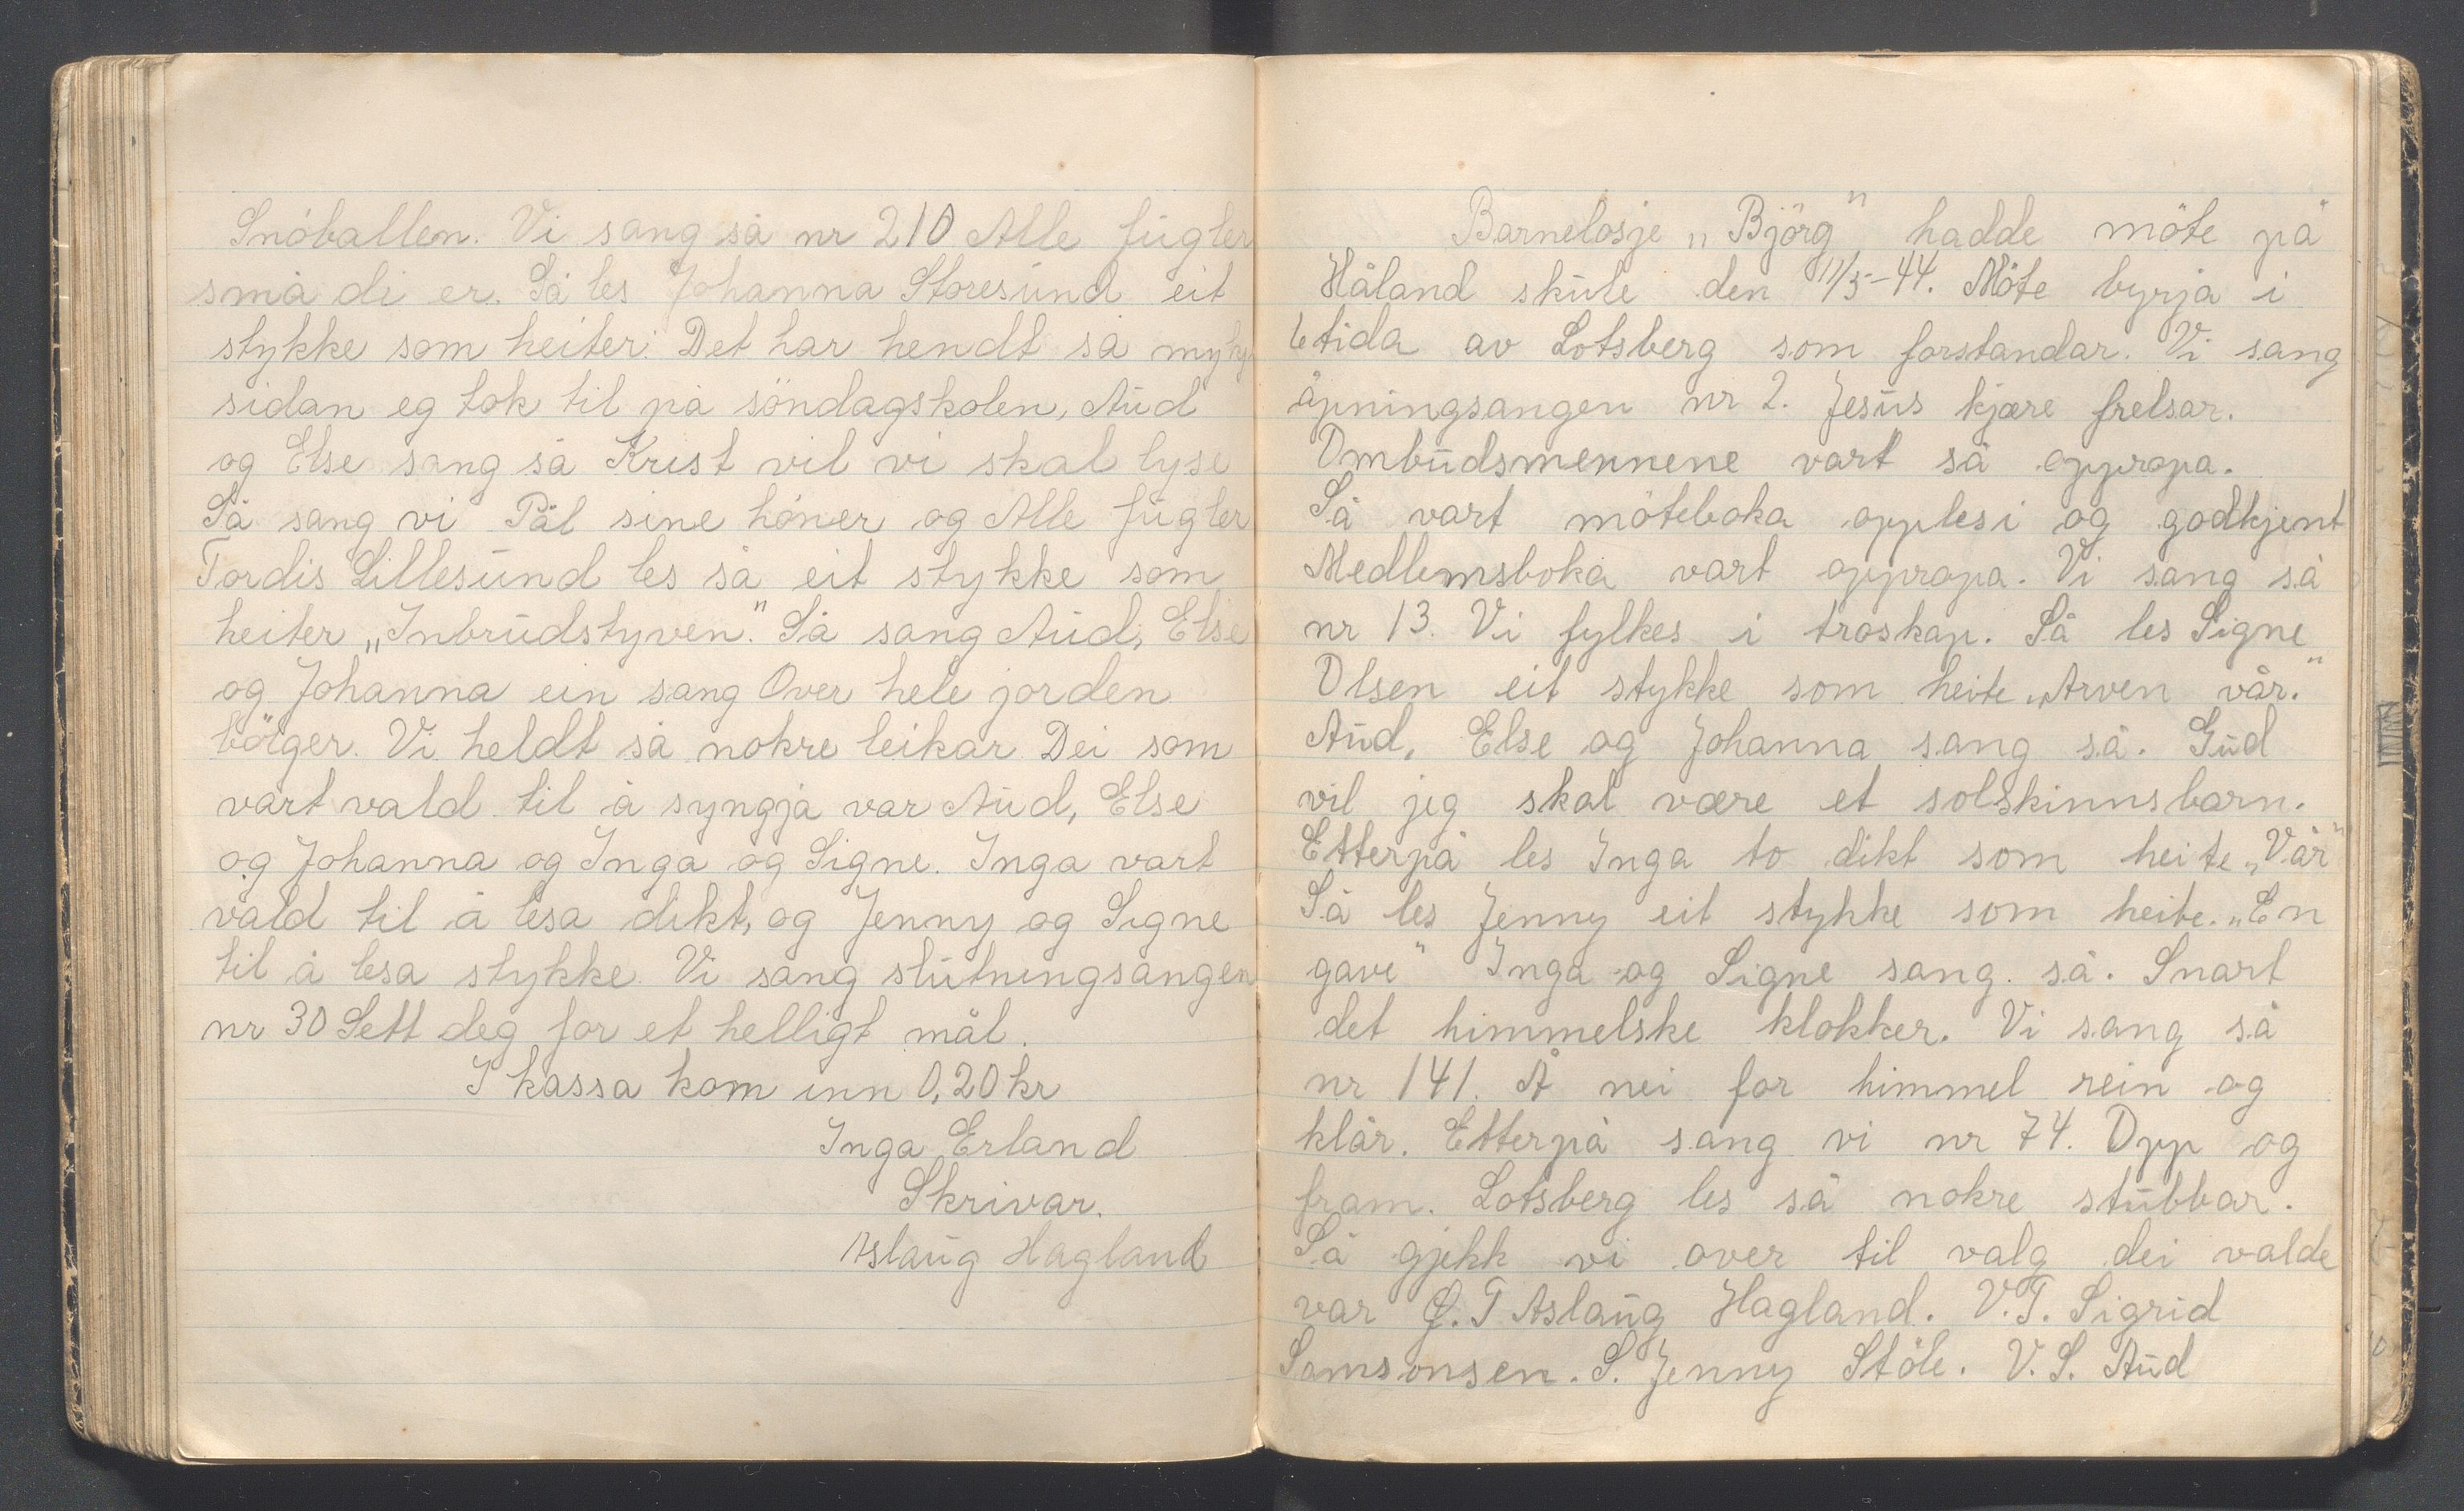 Snöballen. Vi sang så nr 210 Alle fugler
små di er. Så les Johanna Storesund eit
stykke som heiter: Det har hendt så mykje
sidan eg tok til på söndagskolen, Aud
og Else sang så Krist vil vi skal lyse
Så sang vi Pål sine höner og Alle fugler
Tordis Lillesund les så eit stykke som
heiter „Inbrudstyven." Så sang Aud, Else
og Johanna ein sang Over hele jorden
börger. Vi heldt så nokre leikar Dei som
vart vald til å syngja var Aud, Else
og Johanna og Inga og Signe. Inga vart
vald til å lesa dikt, og Jenny og Signe
til å lesa stykke. Vi sang slutningsangen
nr 30 Sett deg for et helligt mål.
I kassa kom inn 0,20 kr
Inga Erland
Skrivar.
Aslaug Hagland
Barnelosje „Björg" hadde möte på
Håland skule den 11/5-44. Möte byrja i
6 tida av Lotsberg som forstandar. Vi sang
åpningsangen nr 2. Jesus kjære frelsar.
Ombudsmennene vart så oppropa.
Så vart möteboka opplesi og godkjent
Medlemsboka vart oppropa. Vi sang så
nr 13. Vi fylkes i troskap. Så les Signe
Olsen eit stykke som heite „Arven vår."
Aud, Else og Johanna sang så. Gud
vil jeg skal være et solskinnsbarn.
Etterpå les Inga to dikt som heite „Vår"
Så les Jenny eit stykke som heite. „En
gave" Inga og Signe sang. så. Snart
det himmelske klokker. Vi sang så
nr 141. Å nei for himmel rein og
klår. Etterpå sang vi nr 74. Opp og
fram. Lotsberg les så nokre stubbar.
Så gjekk vi over til valg dei valde
var Ø. T Aslaug Hagland. V.T. Sigrid
Samsonsen. S. Jenny Stöle. V. S. Aud